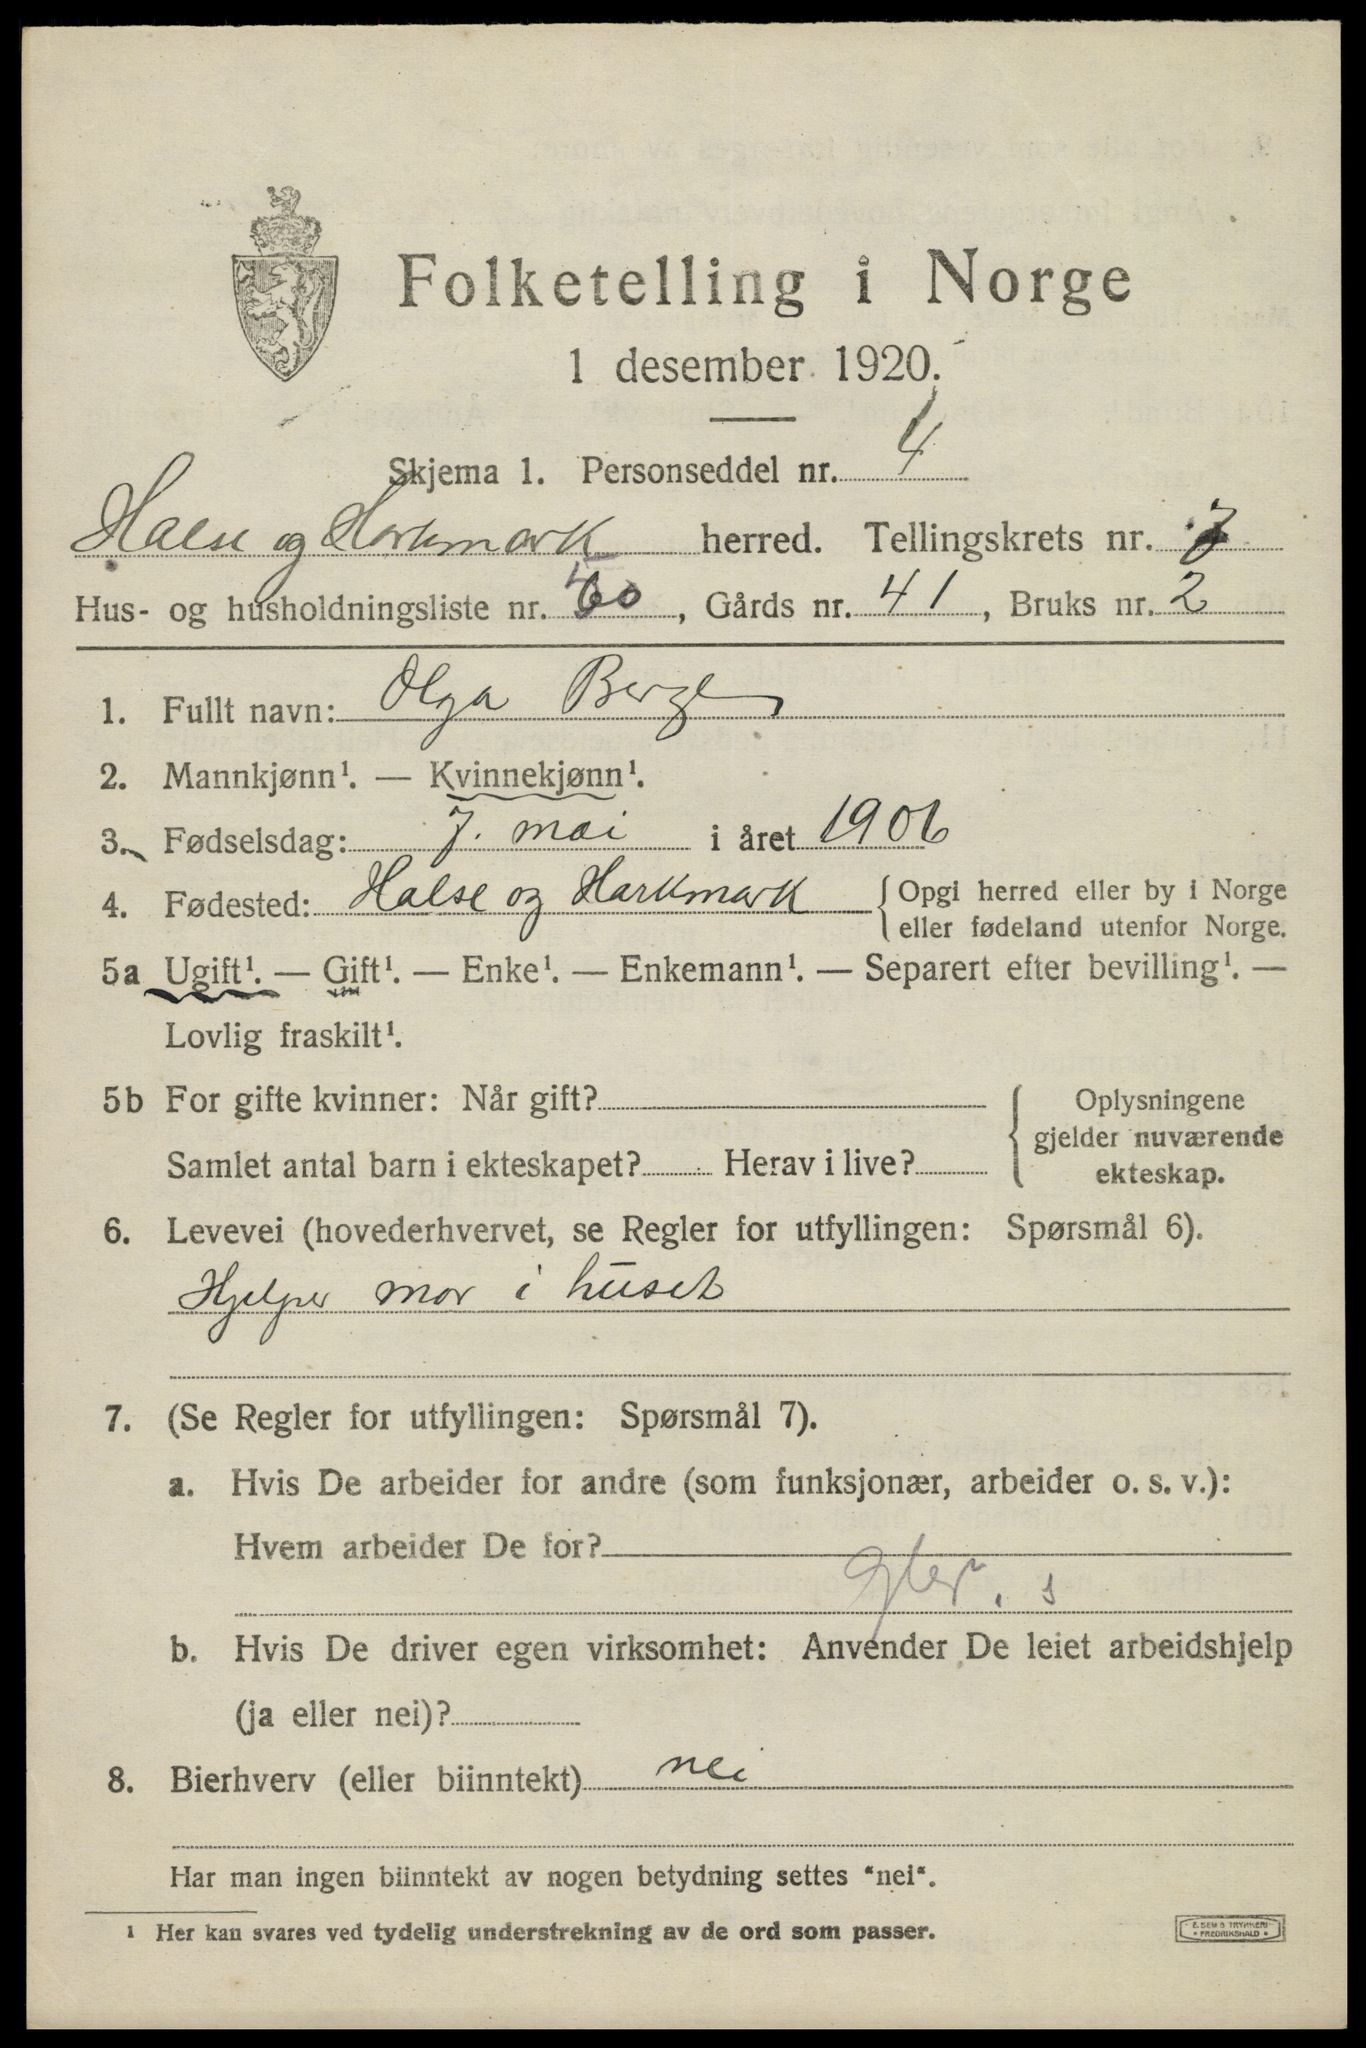 Folketelling i Norge
1 desember 1920.
Skjema 1. Personseddel nr. 4
Halse og Harkmark herred. Tellingskrets nr. 7
Hus- og husholdningsliste nr. , Gårds nr. 41, Bruks nr. 2
1. Fullt navn: Olga
2. Mannkjønn¹. — Kvinnekjønn¹.
3. Fødselsdag: 7. mai i året 1906
4. Fødested: Halse og Harkmark { Opgi herred eller by i Norge
eller fødeland utenfor Norge.
5a Ugift¹. — Gift¹. — Enke¹. — Enkemann¹. — Separert efter bevilling¹. —
Lovlig fraskilt¹.
5b For gifte kvinner: Når gift? { Oplysningene
gjelder nuværende
Samlet antal barn i ekteskapet? Herav i live? ekteskap.
6. Levevei (hovederhvervet, se Regler for utfyllingen: Spørsmål 6).
Hjelper mor i huset
7. (Se Regler for utfyllingen: Spørsmål 7).
a. Hvis De arbeider for andre (som funksjonær, arbeider o. s. v.):
Hvem arbeider De for?
b. Hvis De driver egen virksomhet: Anvender De leiet arbeidshjelp
(ja eller nei)?
8. Bierhverv (eller biinntekt) nei
Har man ingen biinntekt av nogen betydning settes "nei".
¹ Her kan svares ved tydelig understrekning av de ord som passer.
E. SEM'S TRYKKERI
FREDRIKSHALD